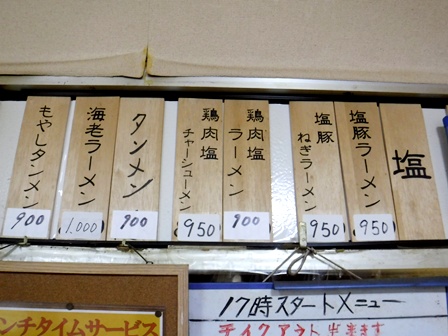 塩
塩豚ラーメン
950
塩豚
ねぎラーメン
950
鶏肉塩
ラーメン
900
鶏肉塩
チャーシューメン
950
タンメン
900
海老ラーメン
1.000
もやしタンメン
900
ンチタイムサービス
17時スタートメニュー
テイクアウト出来ます